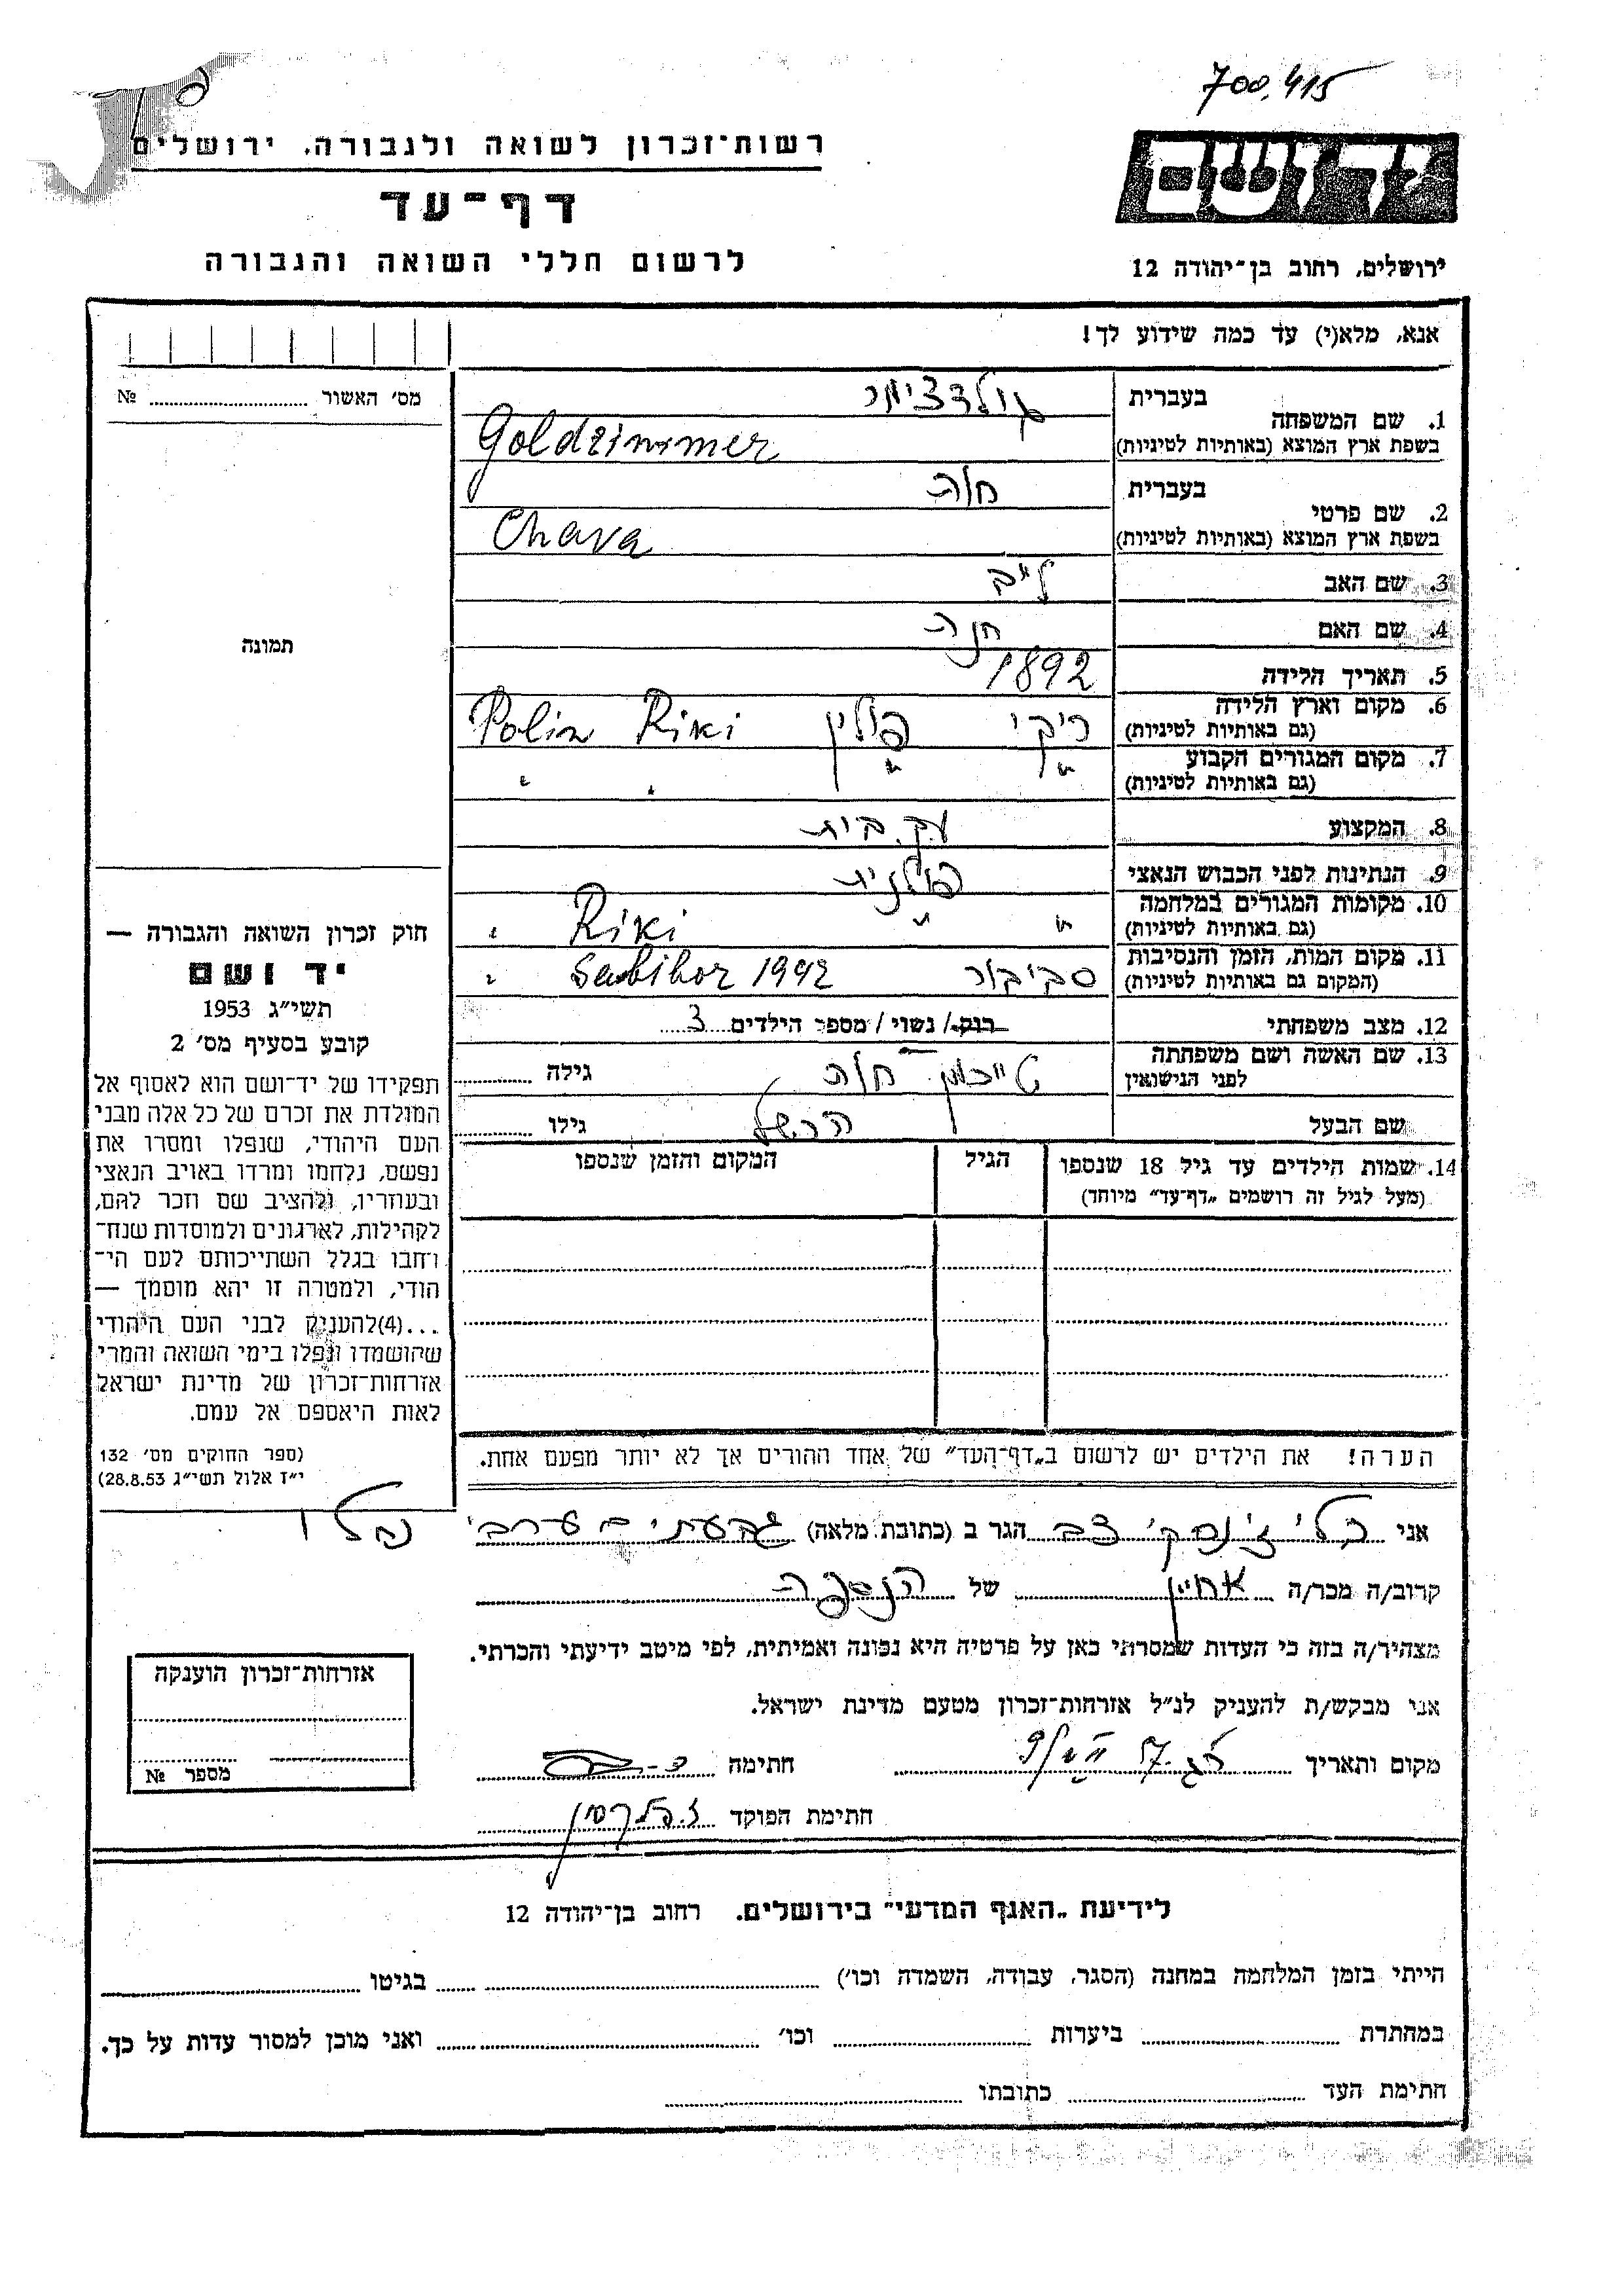 700,415
רשות־זכרון לשואה ולגבורה, ירושלים
דף־עד
לרשום חללי השואה והגבורה
יד ושם
ירושלים, רחוב בן־יהודה 12
אנא, מלא(י) עד כמה שידוע לך!
מס׳ האשור № 
תמונה
1. שם המשפחה בעברית גולדצימר
בשפת ארץ המוצא (באותיות לטיניות) Goldzimmer
2. שם פרטי בעברית חוה
בשפת ארץ המוצא (באותיות לטיניות) Chava
3. שם האב לייב
4. שם האם חנה
5. תאריך הלידה 1892
6. מקום וארץ הלידה ריקי פולין Riki Polin
(גם באותיות לטיניות)
7. מקום המגורים הקבוע " " " "
(גם באותיות לטיניות)
8. המקצוע עק. בית
9. הנתינות לפני הכבוש הנאצי פולנית
10. מקומות המגורים במלחמה " " Riki "
(גם באותיות לטיניות)
11. מקום המות, הזמן והנסיבות סביבור Sobibor 1942 "
(המקום גם באותיות לטיניות)
12. מצב משפחתי רוק/ נשוי/ מספר הילדים 3
13. שם האשה ושם משפחתה חוה גילה
לפני הנישואין
שם הבעל הרשל גילו
14. שמות הילדים עד גיל 18 שנספו הגיל המקום והזמן שנספו
(מעל לגיל זה רושמים „דף־עד״ מיוחד)
הערה! את הילדים יש לרשום ב„דף־העד״ של אחד ההורים אך לא יותר מפעם אחת.
חוק זכרון השואה והגבורה —
יד ושם
תשי״ג 1953
קובע בסעיף מס׳ 2
תפקידו של יד־ושם הוא לאסוף אל
המולדת את זכרם של כל אלה מבני
העם היהודי, שנפלו ומסרו את
נפשם, נלחמו ומרדו באויב הנאצי
ובעוזריו, ולהציב שם וזכר להם,
לקהילות, לארגונים ולמוסדות שנח־
רחבו בגלל השתייכותם לעם הי־
הודי, ולמטרה זו יהא מוסמך —
...(4)להעניק לבני העם היהודי
שהושמדו ונפלו בימי השואה והמרי
אזרחות־זכרון של מדינת ישראל
לאות היאספם אל עמם.
(ספר החוקים מס׳ 132
י״ז אלול תשי״ג 28.8.53)
אני צבי הגר ב (כתובת מלאה) גבעתיים
קרוב/ה מכר/ה אחיין של הנספה
מצהיר/ה בזה כי העדות שמסרתי כאן על פרטיה היא נכונה ואמיתית, לפי מיטב ידיעתי והכרתי.
אני מבקש/ת להעניק לנ״ל אזרחות־זכרון מטעם מדינת ישראל.
מקום ותאריך חתימה
חתימת הפוקד
אזרחות־זכרון הוענקה
מספר №
לידיעת „האגף המדעי״ בירושלים. רחוב בן־יהודה 12
הייתי בזמן המלחמה במחנה (הסגר, עבודה, השמדה וכו׳) בגיטו
במחתרת ביערות וכו׳ ואני מוכן למסור עדות על כך.
חתימת העד כתובתו